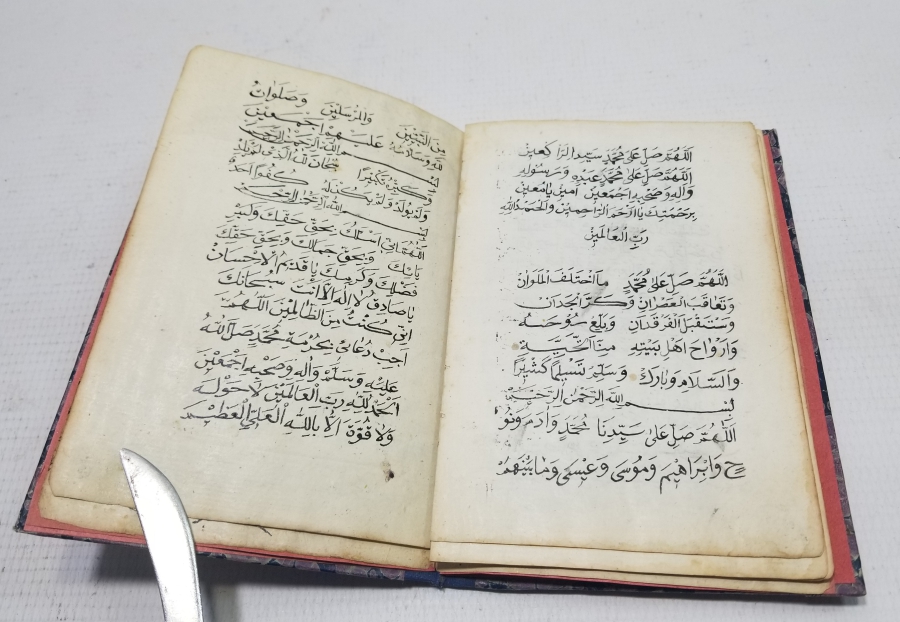 اللهم صل على محمد سيد الراكعين
اللهم صل على محمد عبده ورسوله
واله وصحبه اجمعين امين يا معين
برحمتك يا ارحم الراحمين والحمد لله
رب العالمين
اللهم صل على محمد ما اختلف الملوان
وتعاقب العصران وكر الجدان
وستقبل الفرقدان وبلغ روحه
وارواح اهل بيته منا التحية
والسلام وبارك وسلم تسليما كثيرا
بسم الله الرحمن الرحيم
اللهم صل على سيدنا محمد وادم ونو
ح وابراهيم وموسى وعيسى وما بينهم
من النبيين والمرسلين وصلوات
الله وسلامه عليهم اجمعين
بسم الله الرحمن الرحيم
سبحان الله الذي لم يلد
ولم يولد ولم يكن له كفوا احد
بسم الله الرحمن الرحيم
اللهم اني اسئلك بحق حقك
وبحق جهلك وبحق حقك
فضلك وكرمك يا قديم الاحسان
يا صادق لا اله الا انت سبحانك
اني كنت من الظالمين اللهم
اجب دعائي بحرمة محمد صل الله
عليه وسلم واله وصحبه اجمعين
الحمد لله رب العالمين لا حول
ولا قوة الا بالله العلي العظيم